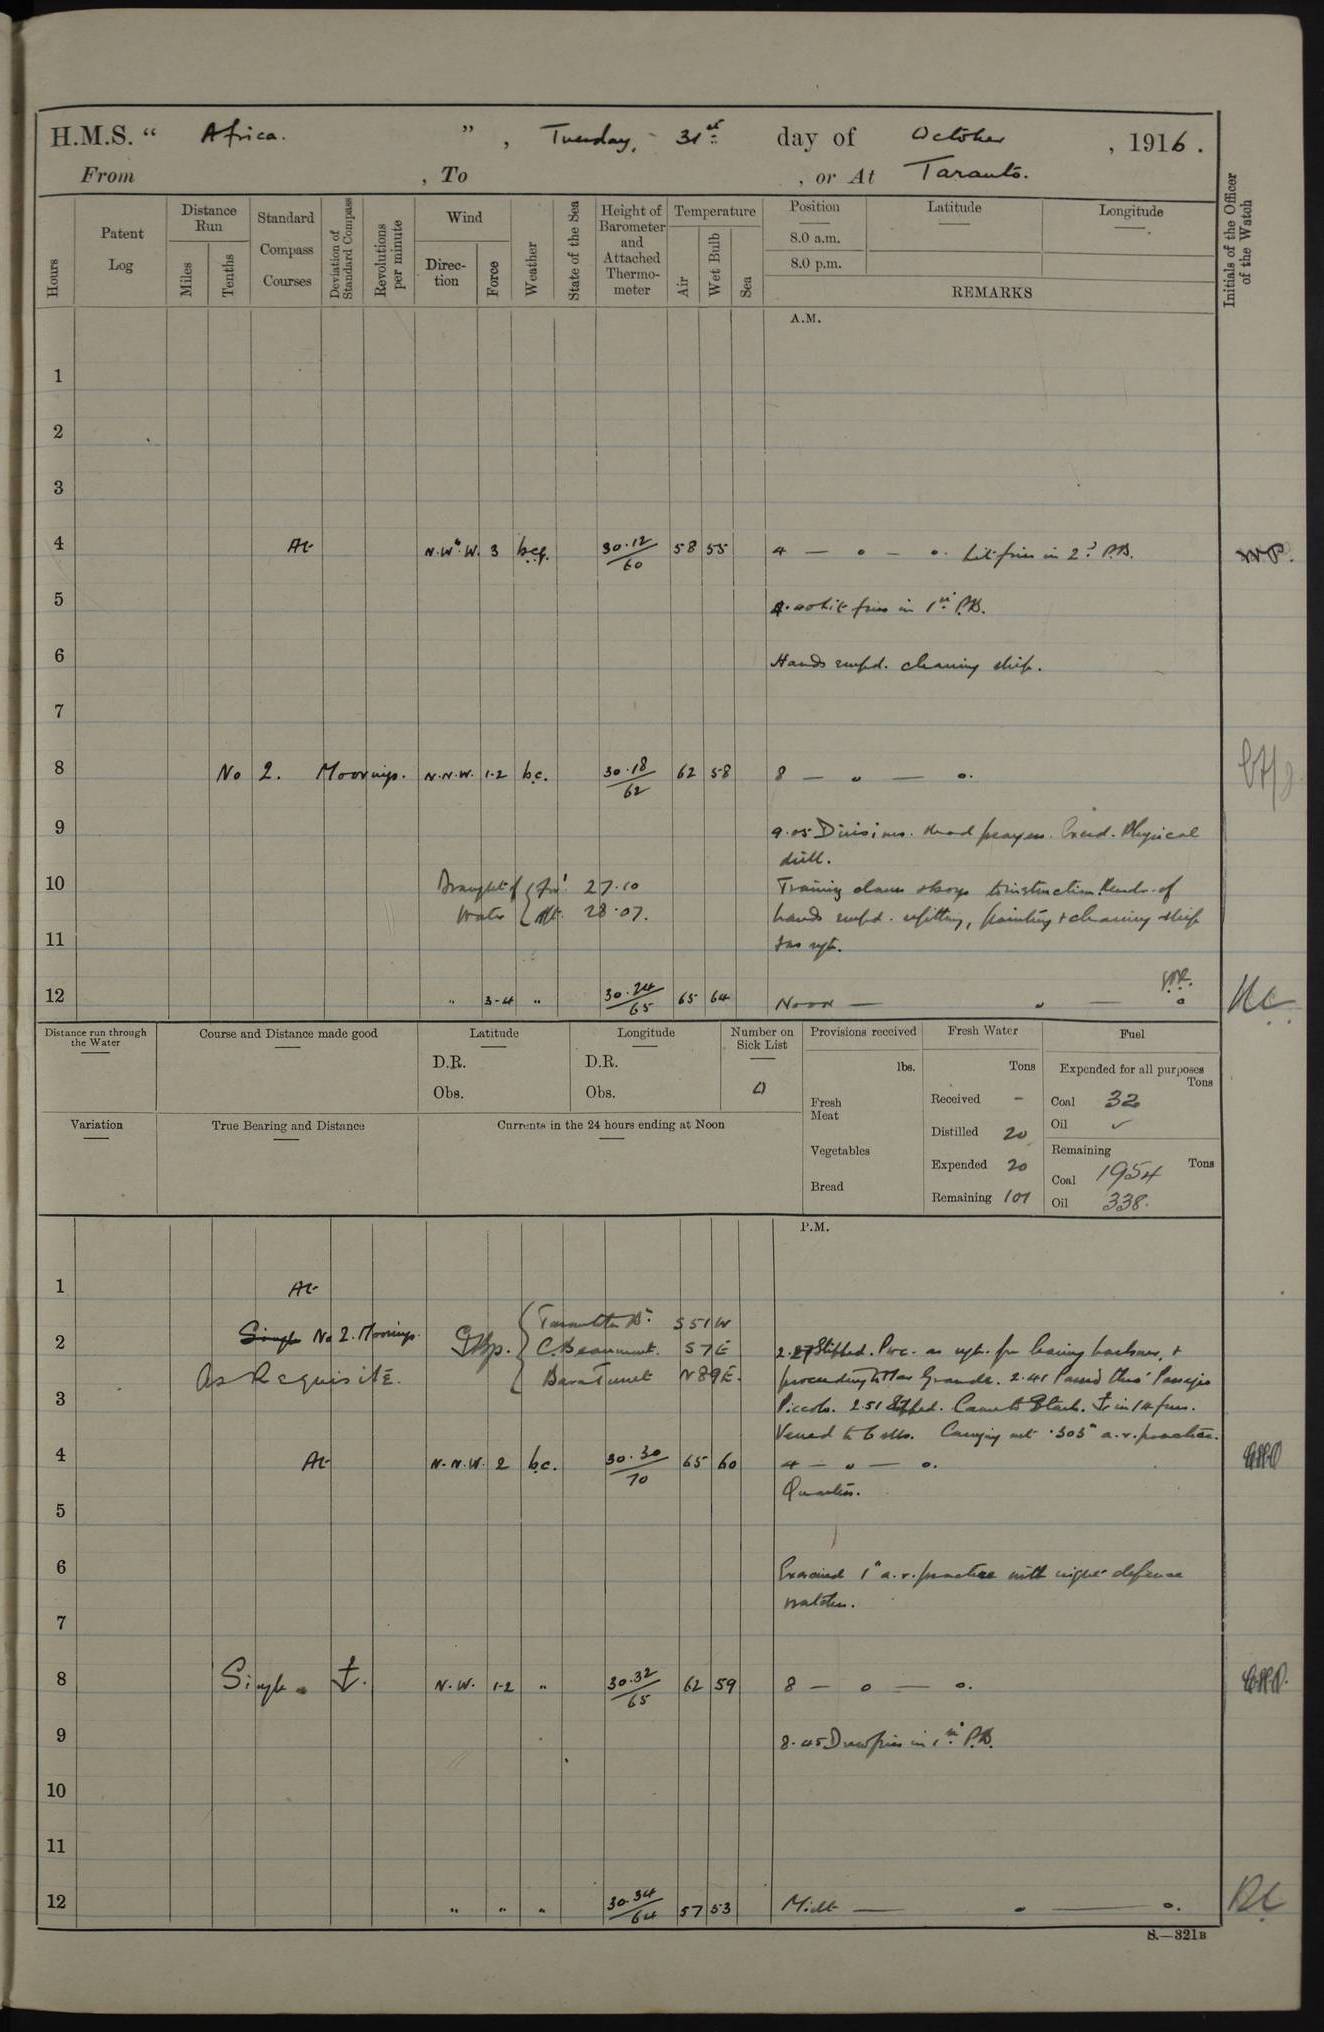 H.M.S. "Africa.", Tuesday, 31st day of October, 1916.
From , To , or At Taranto.
Hours
Patent Log
Distance Run
Miles
Tenths
Standard Compass Courses
Deviation of Standard Compass
Revolutions per minute
Wind
Direction
Force
Weather
State of the Sea
Height of Barometer and Attached Thermometer
Temperature
Air
Wet Bulb
Sea
Position
8.0 a.m.
8.0 p.m.
Latitude
Longitude
REMARKS
Initials of the Officer of the Watch
A.M.
1
2
3
4 At N.W.W. 3 30.12/60 58 55 4 — o — o. Lit fires in 2nd P.B.
5 4.40 Lit fires in 1st P.B.
6 Hands empd. cleaning ship.
7
8 No 2. Moorings. N.N.W. 1-2 b.c. 30.18/62 62 58 8 — o — o.
9 9.05 Divisions. Read prayers. Physical
drill.
10 Draught of Water { For'd 27.10 Training classes & boys to instruction. Remdr. of
Aft. 28.07. hands empd. refitting, painting & cleaning ship
11 as reqt.
12 " 3-4 " 30.24/65 65 64 Noon — o — o
Distance run through the Water
Course and Distance made good
Latitude
D.R.
Obs.
Longitude
D.R.
Obs.
Number on Sick List
Provisions received
lbs.
Fresh Meat
Vegetables
Bread
Fresh Water
Tons
Received -
Distilled 20
Expended 20
Remaining 101
Fuel
Expended for all purposes
Tons
Coal 32
Oil ✓
Remaining
Tons
Coal 1954
Oil 338.
Variation
True Bearing and Distance
Currents in the 24 hours ending at Noon
P.M.
1 At
Single No 2. Moorings. S 51 W
2 C. Beaumont. S 7 E 2.27 Slipped. Proc. as reqt. for leaving harbour, &
As Requisite. N 89 E. proceeding to Mar Grande. 2.41 Passed thro' Passagio
3 Piccolo. 2.51 Came to Starb. ⚓ in 14 fms.
Veered to 6 shs. Carrying out .303" a.r. practice.
4 At N.N.W. 2 b.c. 30.30/70 65 60 4 — o — o.
Quarters.
5
6 Exercised 1" a.r. practice with night defence
watches.
7
8 Single ⚓. N.W. 1-2 " 30.32/65 62 59 8 — o — o.
9 8.45 Drew fires in 1st P.B.
10
11
12 " " " 30.34/64 57 53 Midt — o — o.
S.—321B